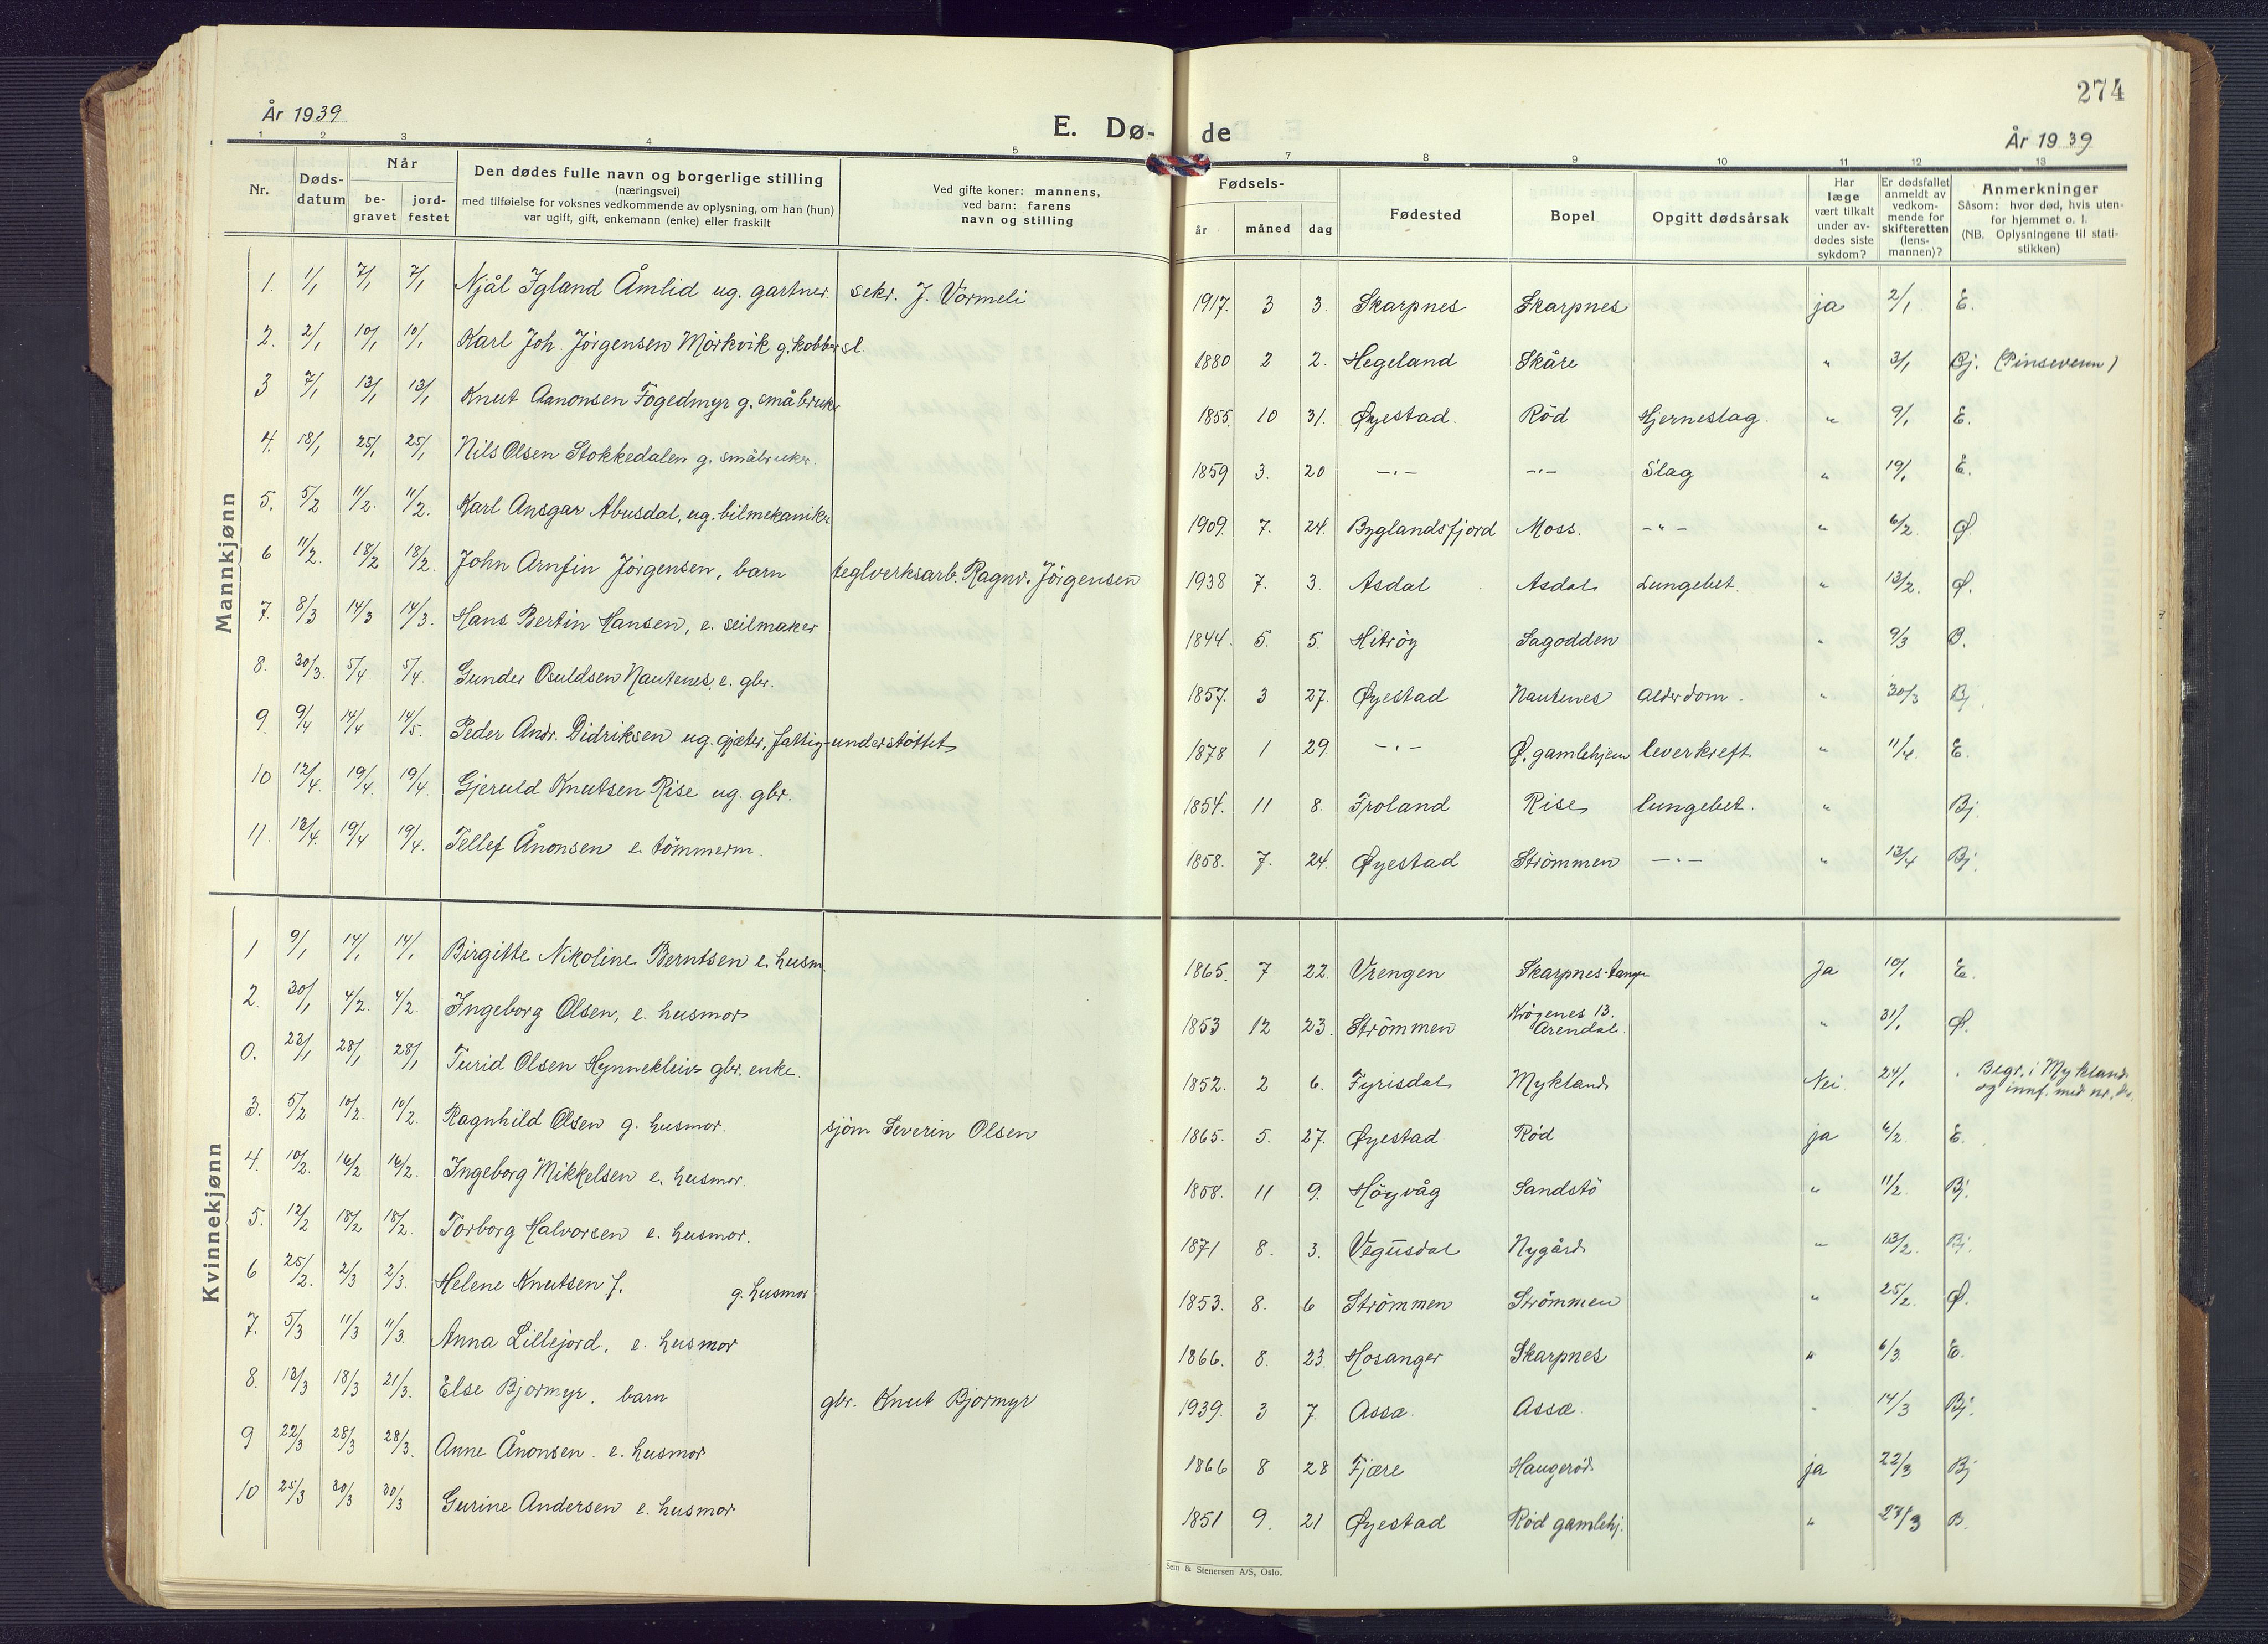 274
År 1939
E. Dø- de
År 1939
1 2 3 4 5 7 8 9 10 11 12 13
Nr.
Døds-
datum
Når
be-
gravet
jord-
festet
Den dødes fulle navn og borgerlige stilling
(næringsvei)
med tilføielse for voksnes vedkommende av oplysning, om han (hun)
var ugift, gift, enkemann (enke) eller fraskilt
Ved gifte koner: mannens,
ved barn: farens
navn og stilling
Fødsels-
år måned dag
Fødested
Bopel
Opgitt dødsårsak
Har
læge
vært tilkalt
under av-
dødes siste
sykdom?
Er dødsfallet
anmeldt av
vedkom-
mende for
skifteretten
(lens-
mannen)?
Anmerkninger
Såsom: hvor død, hvis uten-
for hjemmet o. l.
(NB. Oplysningene til stati-
stikken)
Mannkjønn
1. 1/1 7/1 7/1 Njål Igland Åmlid ug. gartner. sekr. J. Vormeli 1917. 3 3. Skarpnes Skarpnes ja 2/1 E.
2. 2/1 10/1 10/1 Karl Joh. Jörgensen Mörkvik g. kobbersl. 1880 2 2. Hegeland Skåre " 3/1 Bj. (Pinsevenn)
3 7/1 13/1 13/1 Knut Aanonsen Fogedmyr g. småbruker 1855 10 31. Øyestad. Röd Hjerneslag. " 9/1 E.
4. 18/1 25/1 25/1 Nils Olsen Stokkedalen g. småbruker. 1859 3. 20 -"- -"- Slag " 19/1 E.
5. 5/2 11/2. 11/2. Karl Ansgar Abusdal, ug. bilmekaniker 1909. 7. 24. Byglandsfjord Moss. -"- " 6/2. Ø.
6 11/2. 18/2 18/2. John Arnfin Jörgensen, barn teglverksarb. Ragnv. Jörgensen 1938 7. 3. Asdal Asdal Lungebet. " 13/2. Ø.
7. 8/3 14/3 14/3. Hans Bertin Hansen, e. seilmaker 1844. 5. 5. Hitröy Sagodden " 9/3 B.
8. 30/3. 5/4 5/4. Gunder Osuldsen Nautenes, e. gbr. 1857. 3 27. Øyestad Nautenes Alderdom. " 30/3 Bj.
9. 9/4 14/4 14/5. Peder Andr. Didriksen ug. gjæter, fattig-understöttet 1878 1 29 -"- Ø. gamlehjem leverkreft. " 11/4. E.
10 12/4. 19/4. 19/4. Gjeruld Knutsen Rise ug. gbr. 1854. 11 8. Froland Rise lungebet. " Bj.
11. 13/4. 19/4 19/4. Tellef Ånonsen e. tömmerm. 1858. 7. 24. Øyestad Strömmen -"- " 13/4 Bj.
Kvinnekjønn
1 9/1 14/1 14/1 Birgitte Nikoline Berntsen e. husm. 1865. 7 22. Vrengen Skarpnes-tangen Ja 10/1 E.
2. 30/1 4/2. 4/2. Ingeborg Olsen, e. husmor 1853 12 23. Strömmen Krögenes 13. Arendal. " 31/1 Ø.
0. 23/1 28/1 28/1 Turid Olsen Hynnekleiv gbr. enke. 1852. 2 6. Fyrisdal Mykland Nei 24/1 Begr. i Mykland
og innf. med nr. der.
3. 5/2 10/2. 10/2. Ragnhild Olsen g. husmor. sjöm Severin Olsen 1865. 5. 27. Øyestad Röd ja 6/2. E.
4. 10/2. 16/2 16/2. Ingeborg Mikkelsen e. husmor. 1858. 11 9. Höyvåg Sandstö " 11/2. Bj.
5. 12/2 18/2 18/2. Torborg Halvorsen e. husmor. 1871 8. 3. Vegusdal Nygård " 13/2. Bj.
6 25/2. 2/3 2/3. Helene Knutsen f. g. husmor 1853. 8. 6 Strömmen Strömmen " 25/2. Ø.
7. 5/3 11/3 11/3. Anna Lillejord, e. husmor 1866. 8. 23. Hosanger Skarpnes " 6/3. E.
8. 13/3 18/3 21/3. Else Bjormyr, barn gbr. Knut Bjormyr 1939. 3 7. Assæ. Assæ " 14/3 Bj.
9 22/3 28/3 28/3. Anne Ånonsen. e. husmor 1866 8 28 Fjære Haugeröd ja 22/3 Bj
10 25/3 30/3 30/3 Gurine Andersen e. husmor 1851 9. 21 Øyestad Röd gamlehj. " 27/3 B.
Sem & Stenersen A/S, Oslo.